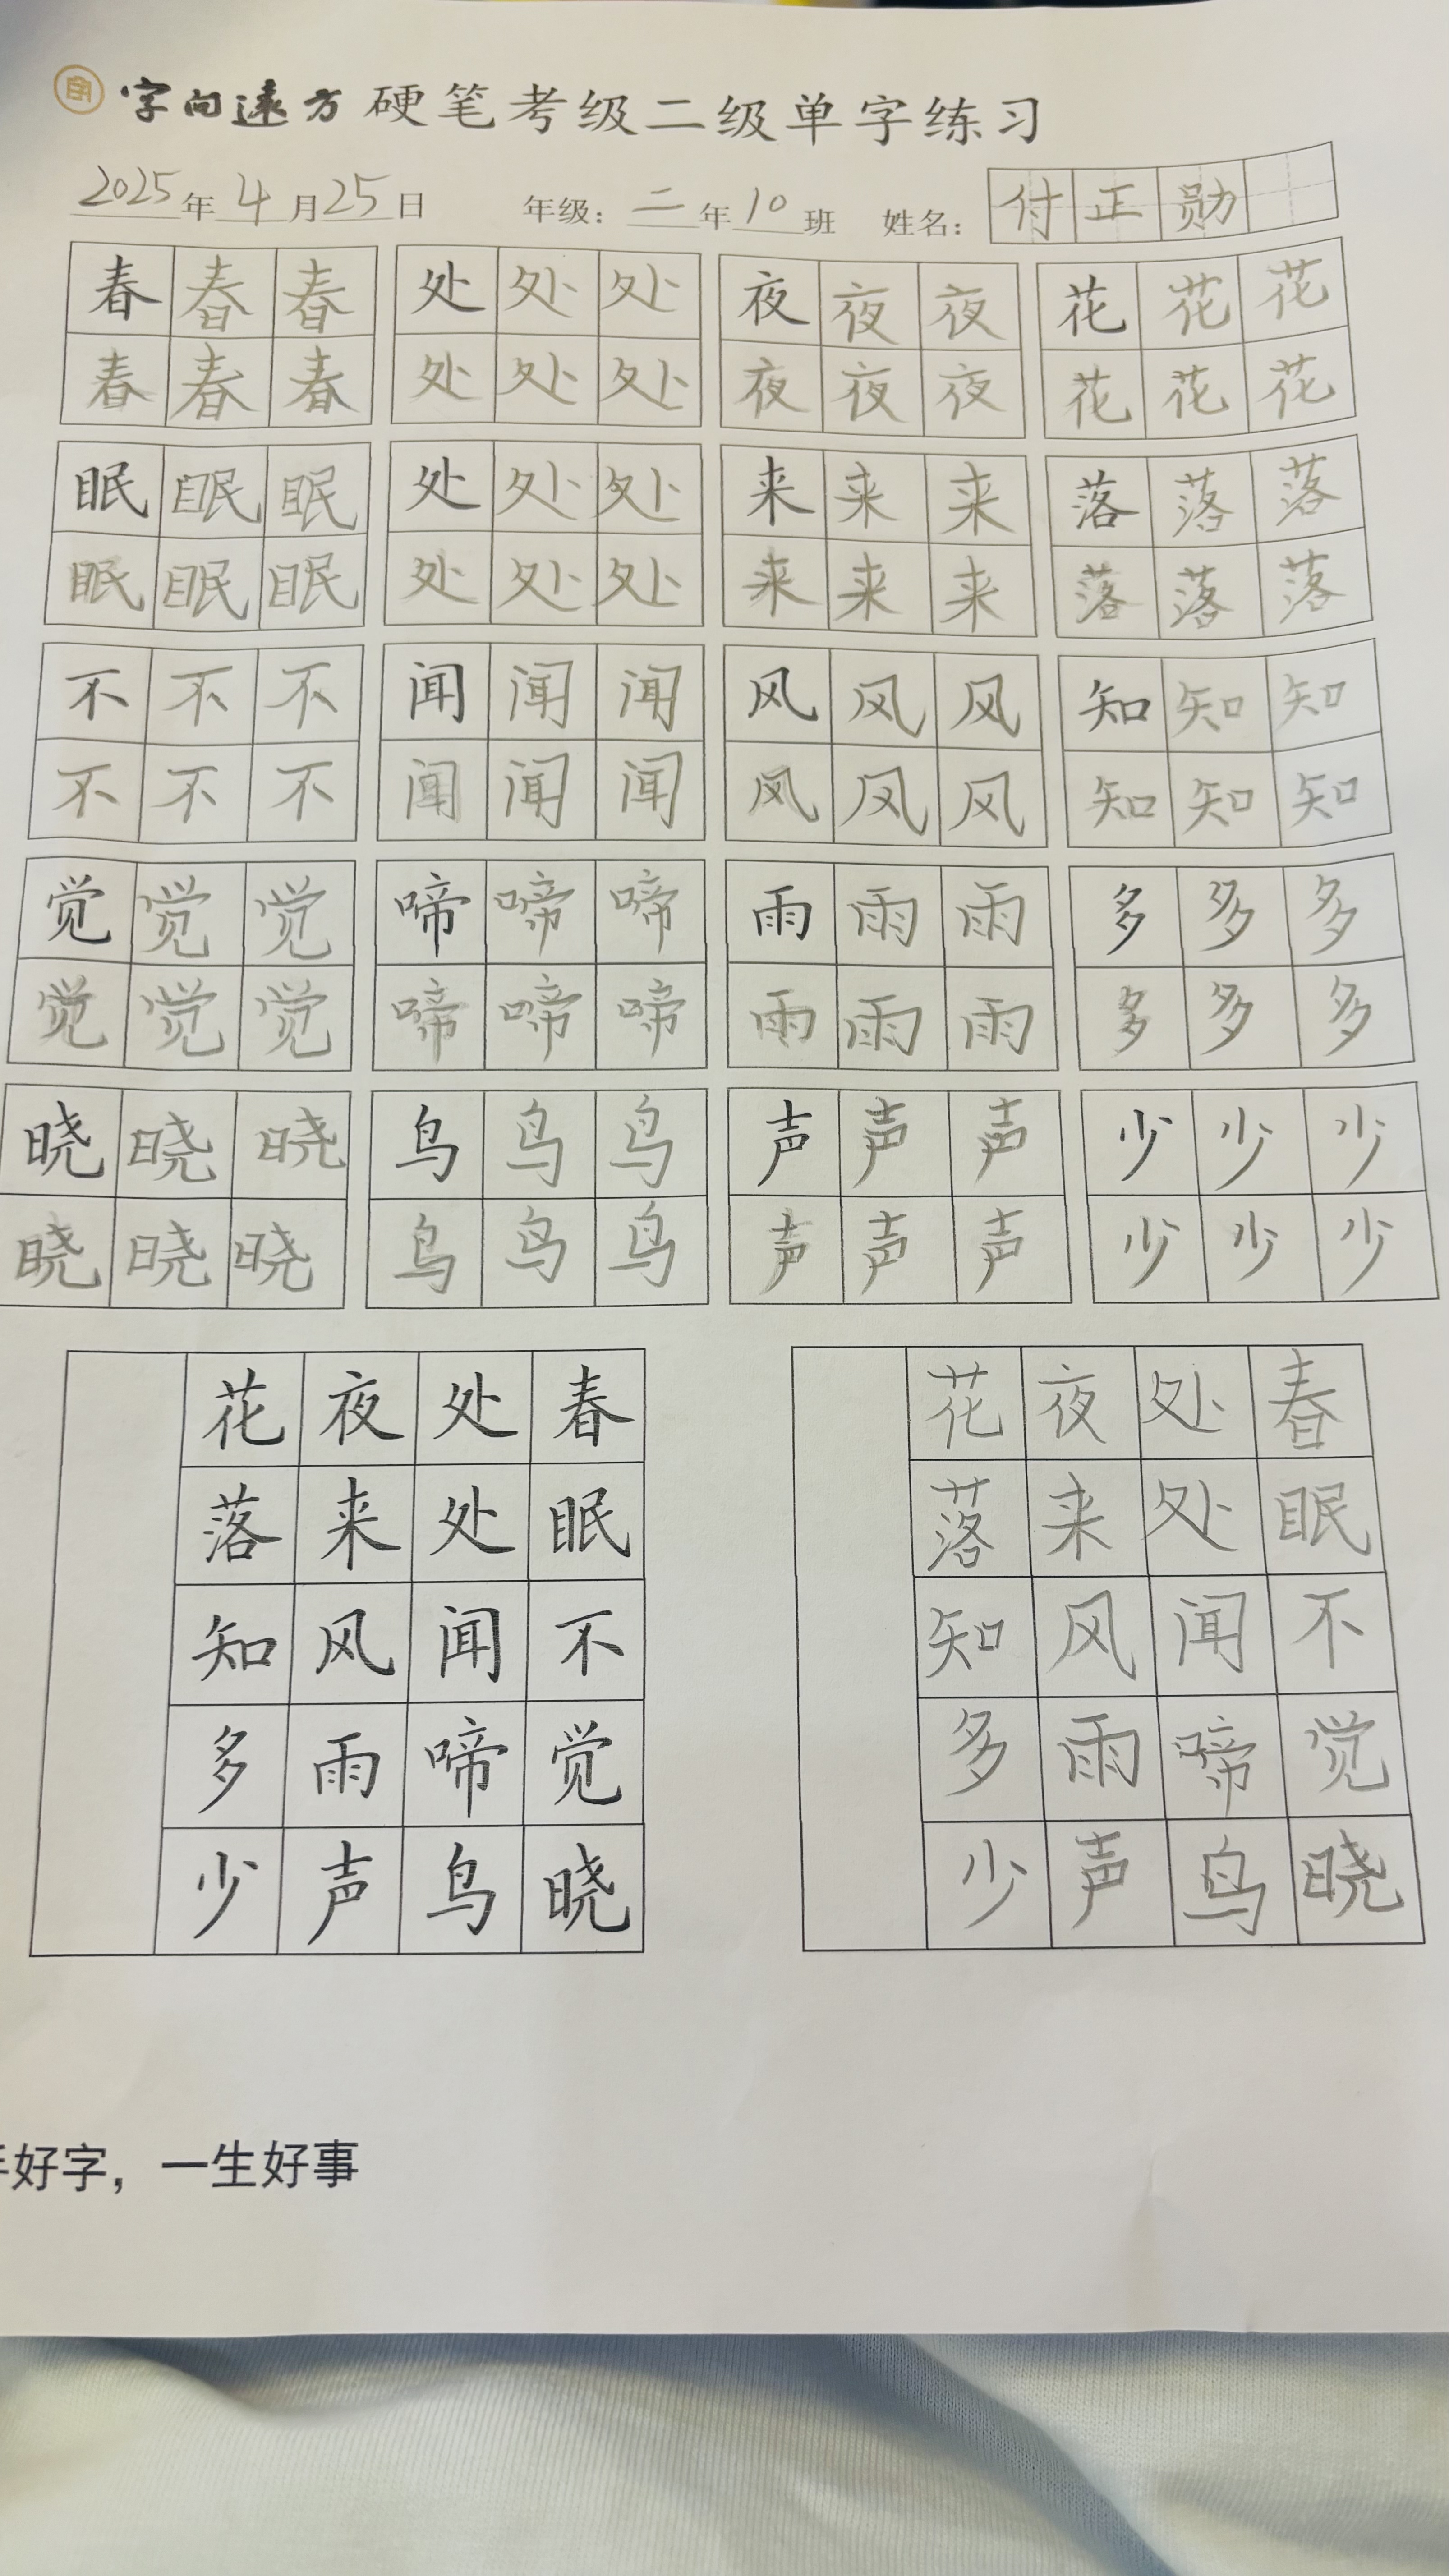 字向远方 硬笔考级二级单字练习
2025年4月25日 年级：二年10班 姓名：付正勋
春春春 处处处 夜夜夜 花花花
春春春 处处处 夜夜夜 花花花
眠眠眠 处处处 来来来 落落落
眠眠眠 处处处 来来来 落落落
不不不 闻闻闻 风风风 知知知
不不不 闻闻闻 风风风 知知知
觉觉觉 啼啼啼 雨雨雨 多多多
觉觉觉 啼啼啼 雨雨雨 多多多
晓晓晓 鸟鸟鸟 声声声 少少少
晓晓晓 鸟鸟鸟 声声声 少少少
春眠不觉晓
处处闻啼鸟
夜来风雨声
花落知多少
春眠不觉晓
处处闻啼鸟
夜来风雨声
花落知多少
好字，一生好事